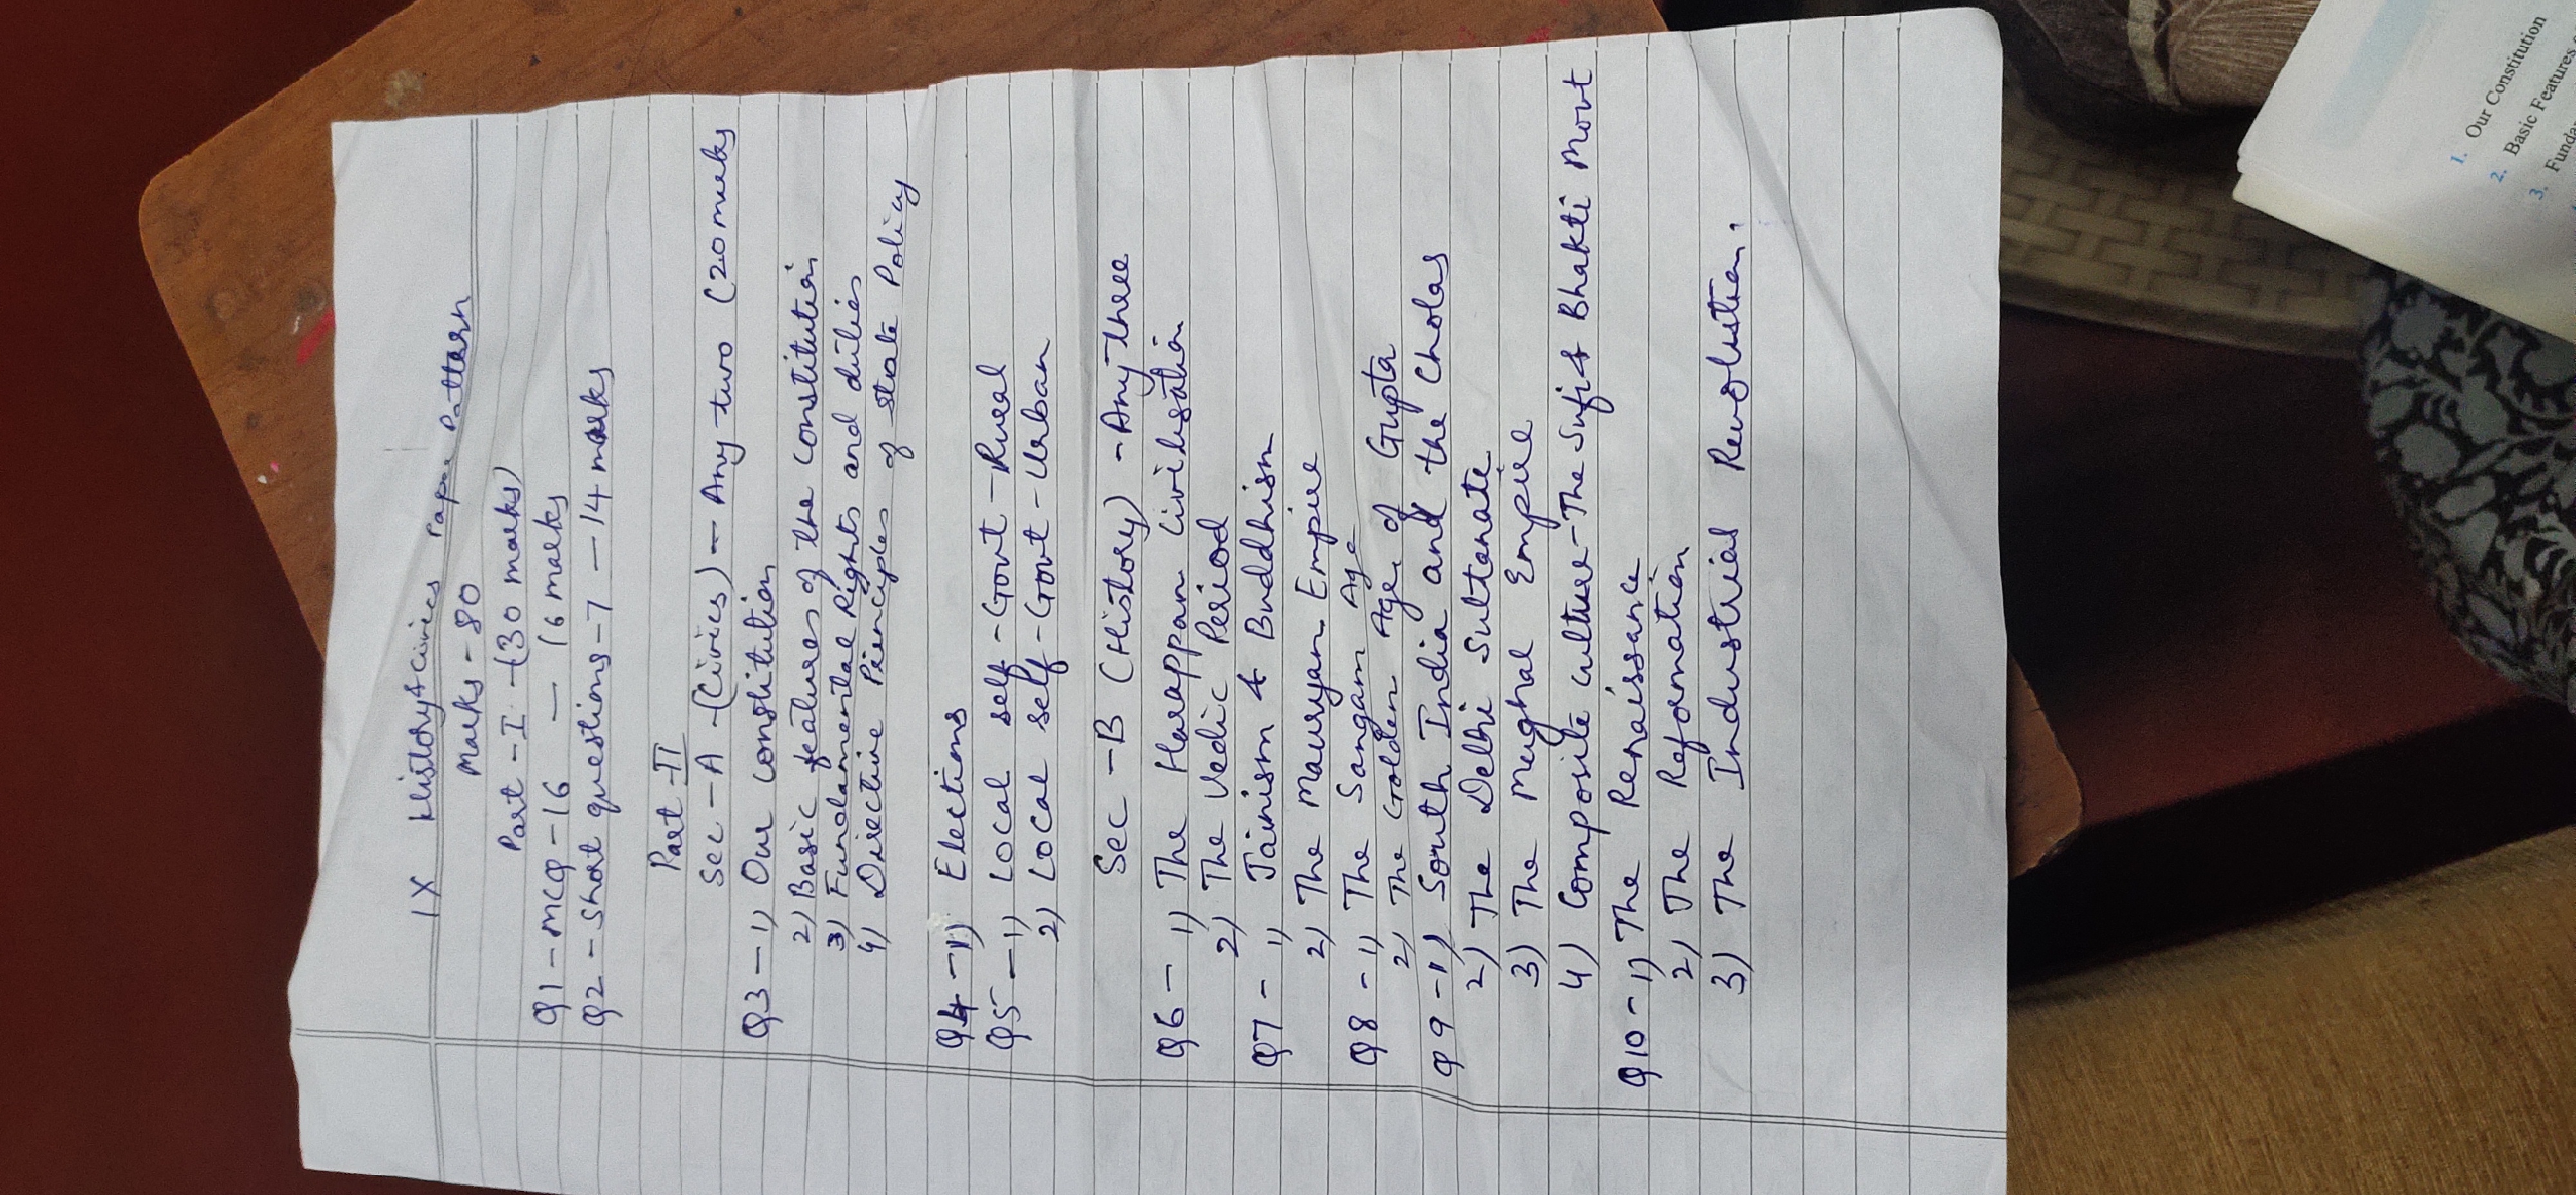 IX History & Civics Paper Pattern
Marks - 80
Part - I - (30 marks)
Q1 - MCQ - 16 - 16 marks
Q2 - Short questions - 7 - 14 marks
Part II
Sec - A - (Civics) - Any two (20 marks
Q3 - 1) Our constitution
2) Basic features of the constitution
3) Fundamental Rights and duties
4) Directive Principles of state Policy
Q4 - 1) Elections
Q5 - 1) Local self - Govt - Rural
2) Local self - Govt - Urban
Sec - B (History) - Any three
Q6 - 1) The Harappan Civilisation
2) The Vedic Period
Q7 - 1) Jainism & Buddhism
2) The Mauryan Empire
Q8 - 1) The Sangam Age
2) The Golden Age of Gupta
Q9 - 1) South India and the Cholas
2) The Delhi Sultanate
3) The Mughal Empire
4) Composite culture - The Sufi & Bhakti Movt
Q10 - 1) The Renaissance
2) The Reformation
3) The Industrial Revolution.
1. Our Constitution
2. Basic Features
3.